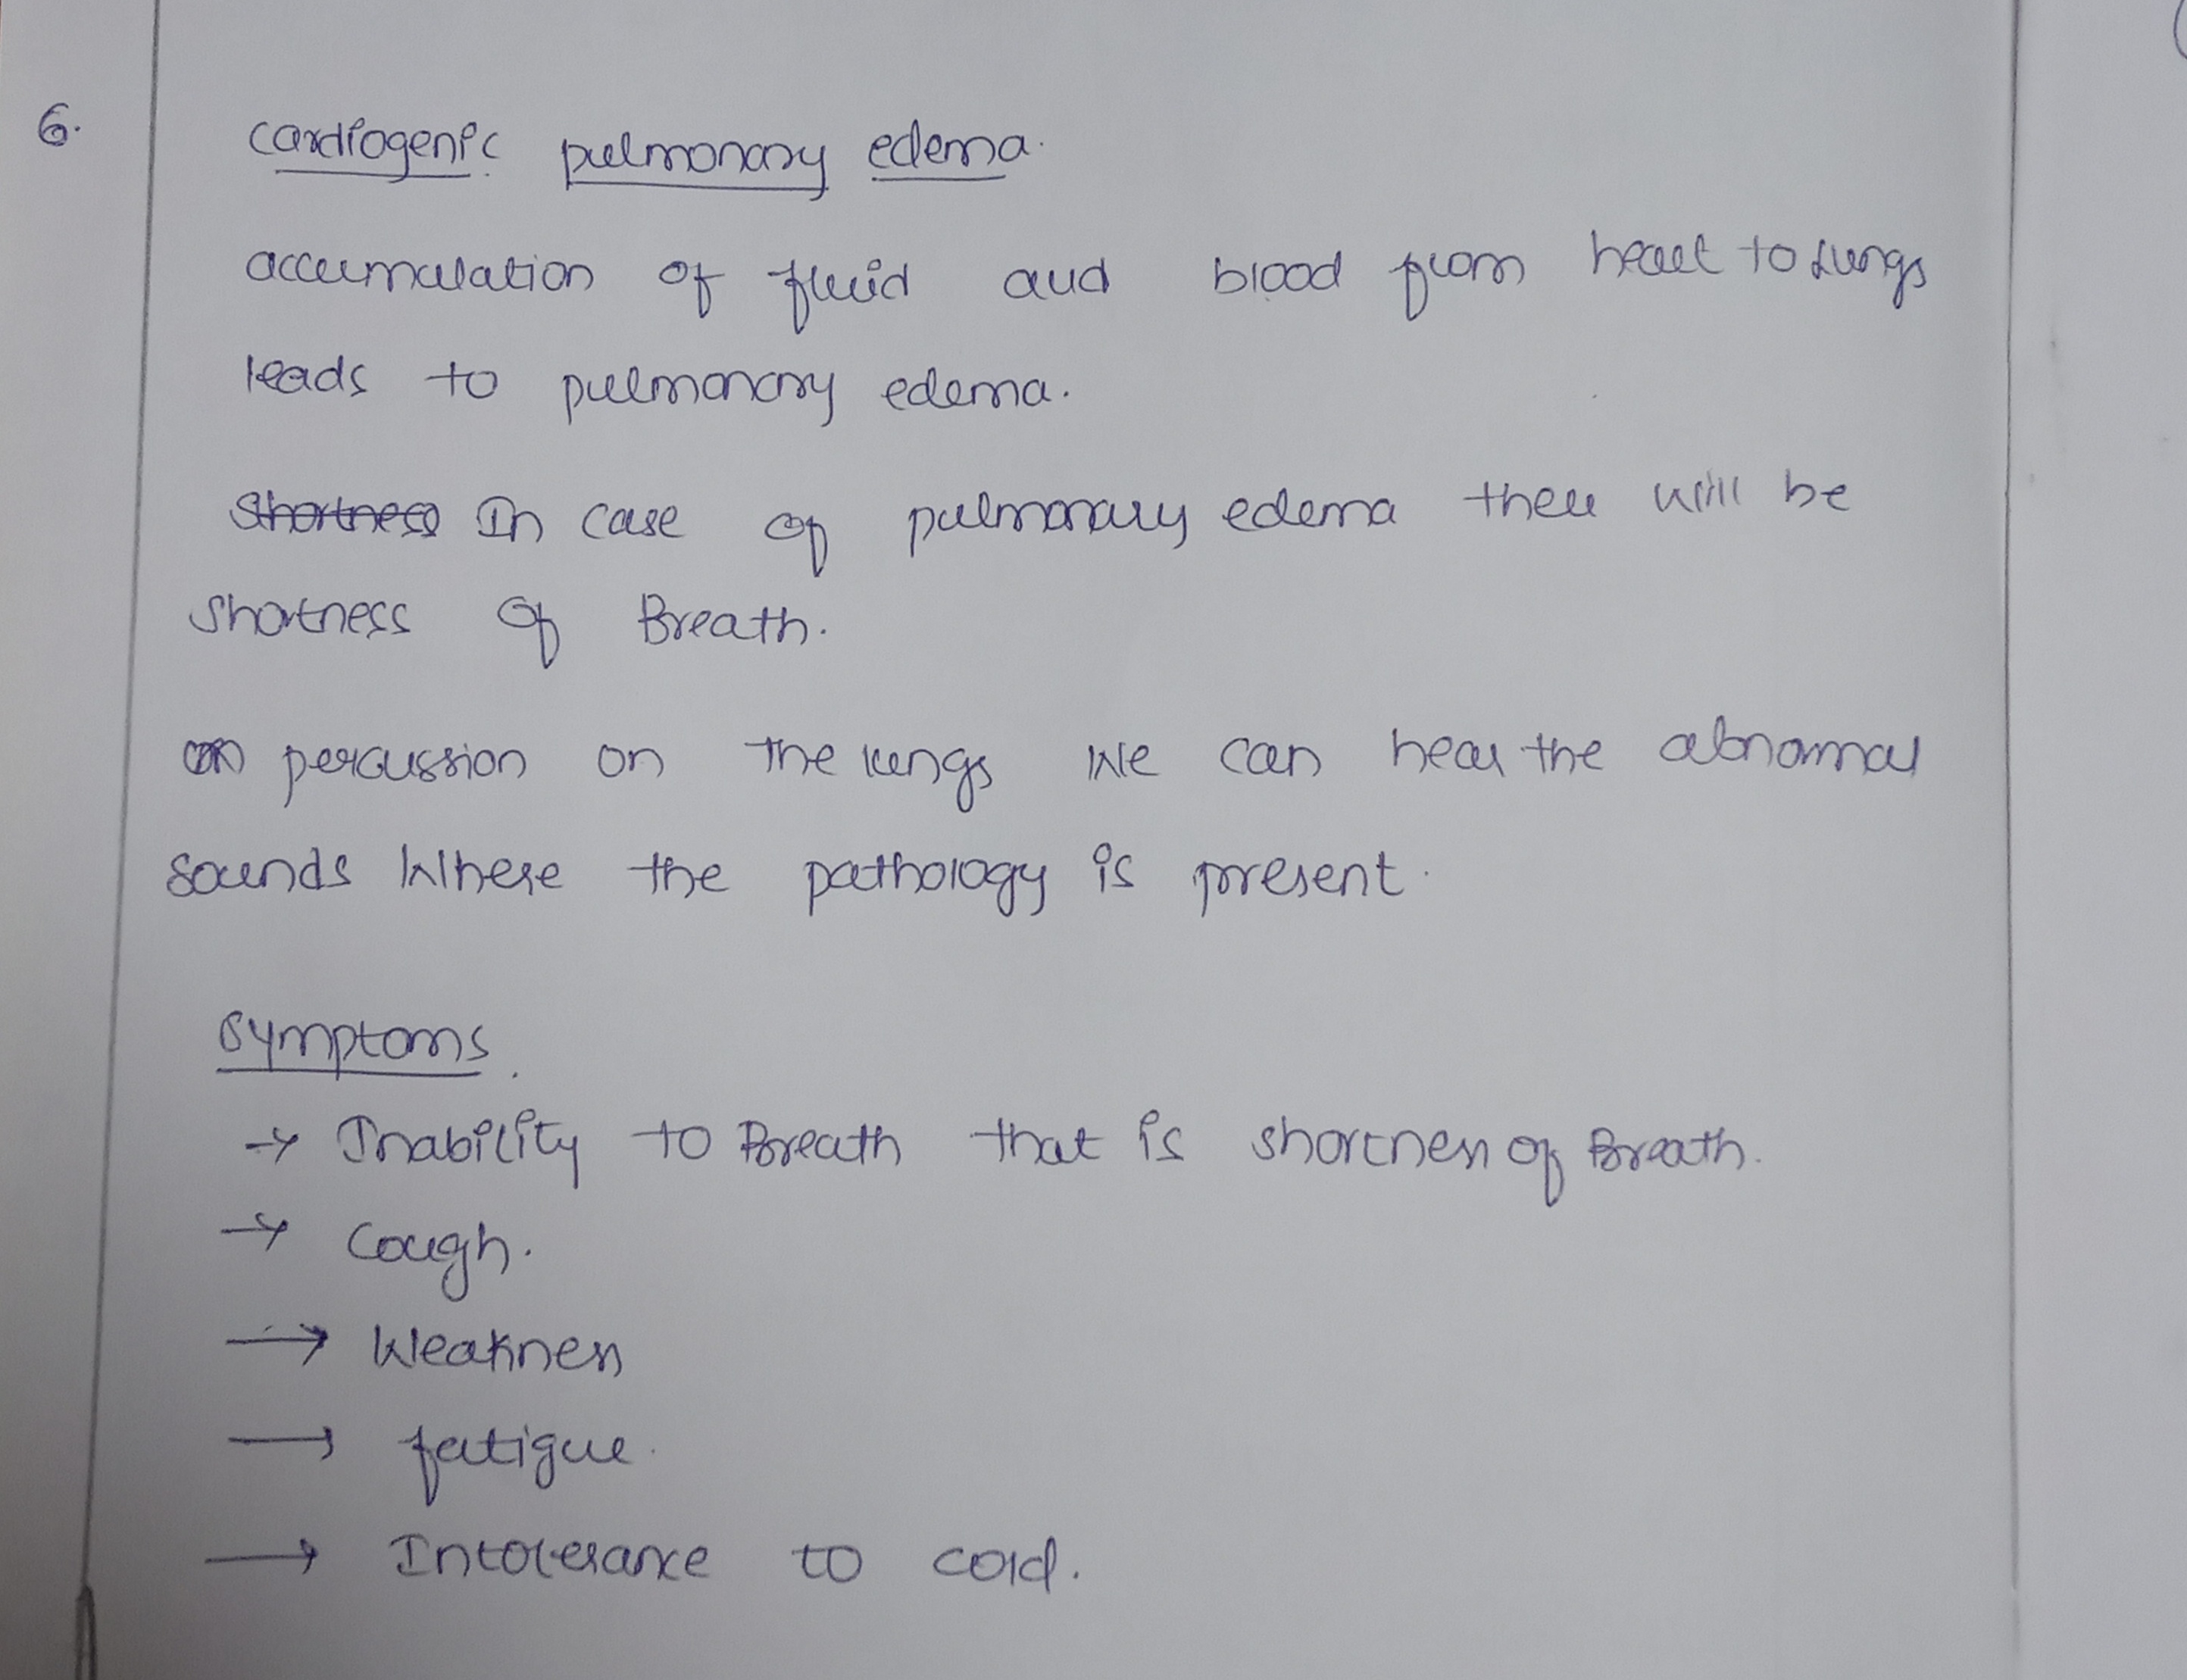 6. cardiogenic pulmonary edema.
accumulation of fluid and blood from heart to Lungs
leads to pulmonary edema.
Shortness In case of pulmonary edema there will be
shortness of Breath.
on percussion on the lungs We can hear the abnormal
sounds Where the pathology is present.
Symptoms.
→ Inability to Breath that is shortness of Breath.
→ Cough.
→ Weakness
→ fatigue.
→ Intolerance to cold.